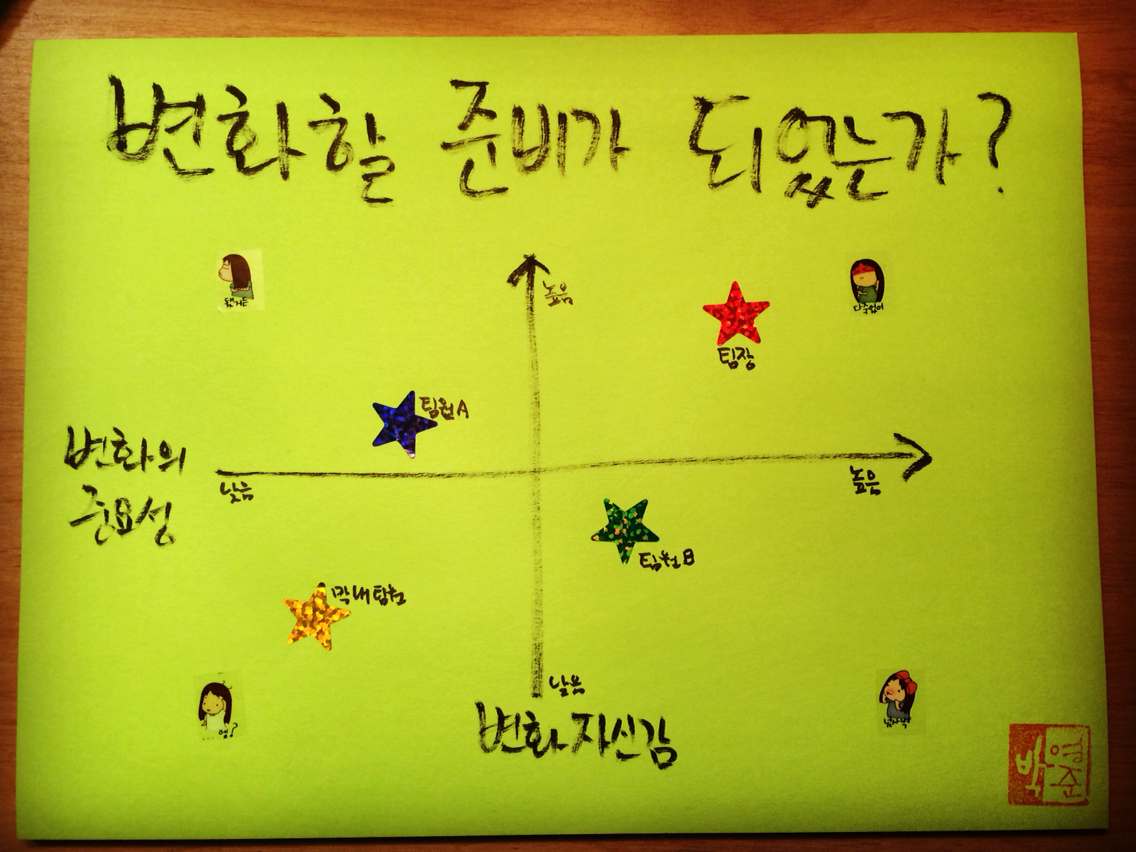 변화할 준비가 되었는가?
됐거든
높음
다죽었어
팀장
팀원A
변화의
중요성
낮음
높음
팀원B
막내팀원
낮음
변화 자신감
박영준